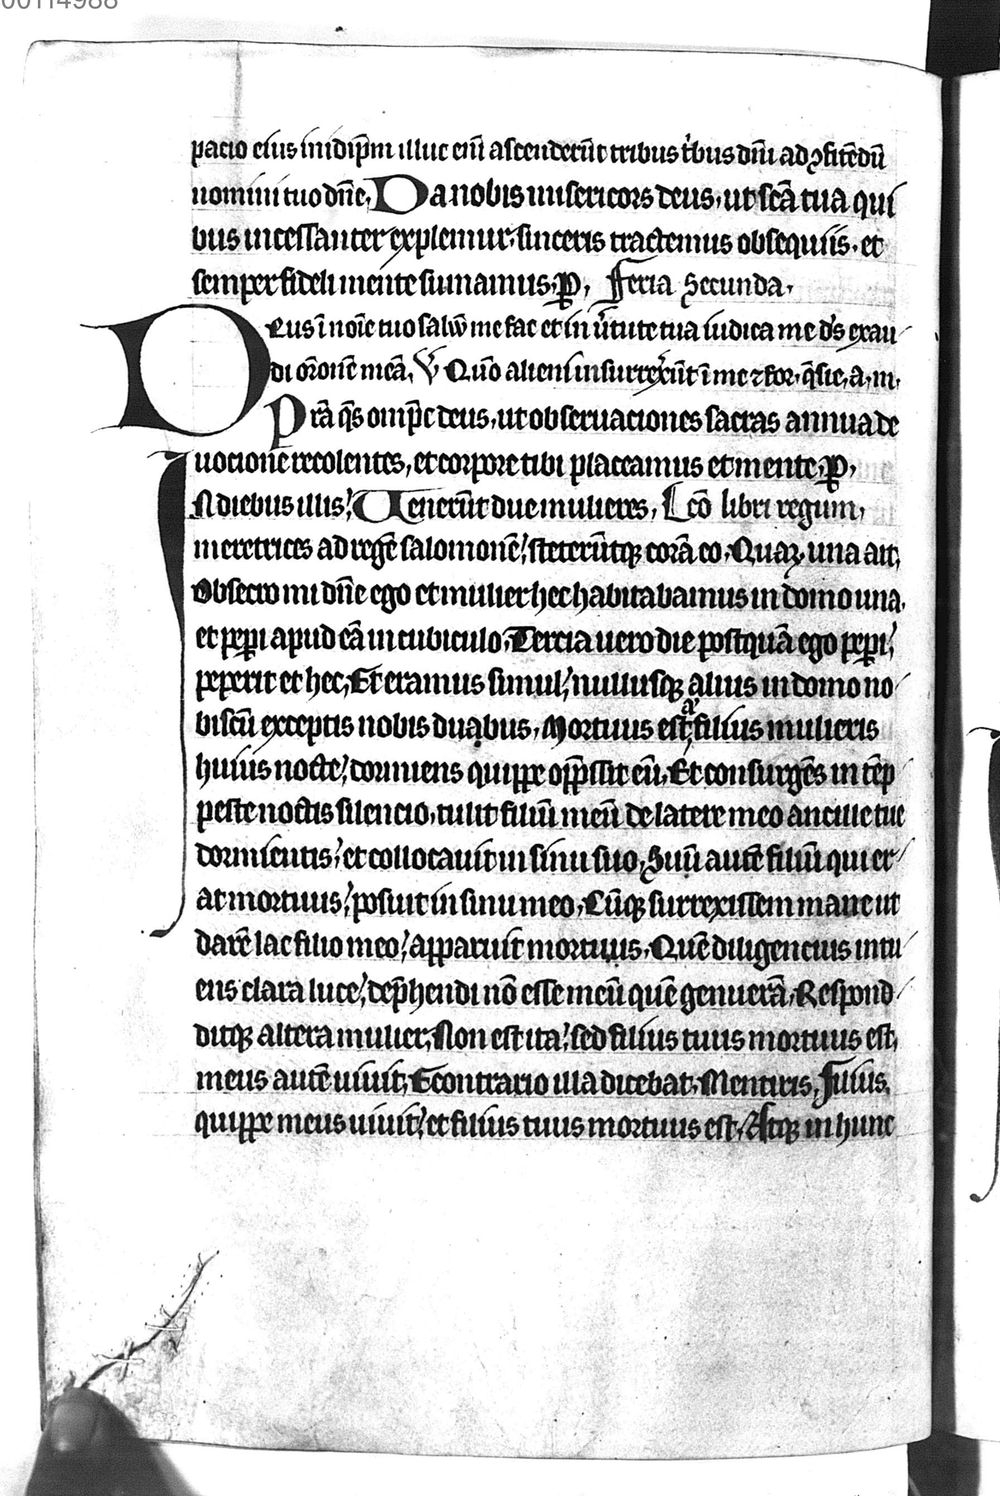 00114988
pacio eius in idip̄m illuc eni᷑ ascenderu᷑t tribus t᷑bus dn̄i ad ꝯfite᷑du᷑
nomini tuo dn̄e, Da nobis misericors deus, ut sc̄a tua qui
bus incessanter explemur, sinceris tractemus obsequiis, et
semper fideli mente sumamus, P̱, Feria Secunda,
Deus i᷑ noi᷑e tuo saluu᷑ me fac et in u᷑tute tua iudica me ds̄ exau
di or̄one᷑ mea᷑, V Quo᷑ alieni insurrexeru᷑t i᷑ me ⁊ for, q̄sie, a, m,
Pr̄a q̄s omp̄c deus, ut obseruaciones sacras annua de
uocione᷑ recolentes, et corpore tibi placeamus et mente, P̱,
In diebus illis, Venerunt᷑ due mulieres, Lc̄o libri regum,
meretrices ad rege᷑ salomone᷑, steteru᷑tqꝫ cora᷑ eo, Quaꝝ una ait,
Obsecro mi dn̄e ego et mulier hec habitabamus in domo una,
et peꝑi apud ea᷑ in cubiculo, Tercia uero die postqua᷑ ego peꝑi,
peperit et hec, Et eramus simul, nullusqꝫ alius in domo no
biscu᷑ exceptis nobis duabus, Mortuus est a᷑t filius mulieris
huius nocte, dormiens quippe opp̄ssit eu᷑, Et consurge᷑s in te᷑p
peste noctis silencio, tulit filiu᷑ meu᷑ de latere meo ancille tue
dormientis, et collocauit in sinu suo, Suu᷑ aute᷑ filiu᷑ qui er
at mortuus, posuit in sinu meo, Cu᷑qꝫ surrexissem mane ut
dare᷑ lac filio meo, apparuit mortuus, Que᷑ diligencius intu
ens clara luce, dep̄hendi no᷑ esse meu᷑ que᷑ genuera᷑, Respond
ditqꝫ altera mulier, Non est ita, sed filius tuus mortuus est,
meus aute᷑ uiuit, Econtrario illa dicebat, Mentiris, Filius,
quippe meus uiuit, et filius tuus mortuus est, Atqꝫ in hunc